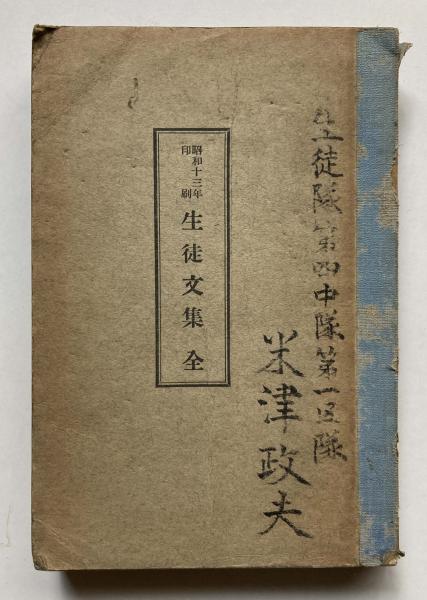 生徒隊第四中隊第一区隊
米津政夫
昭和十三年
印刷
生徒文集 全